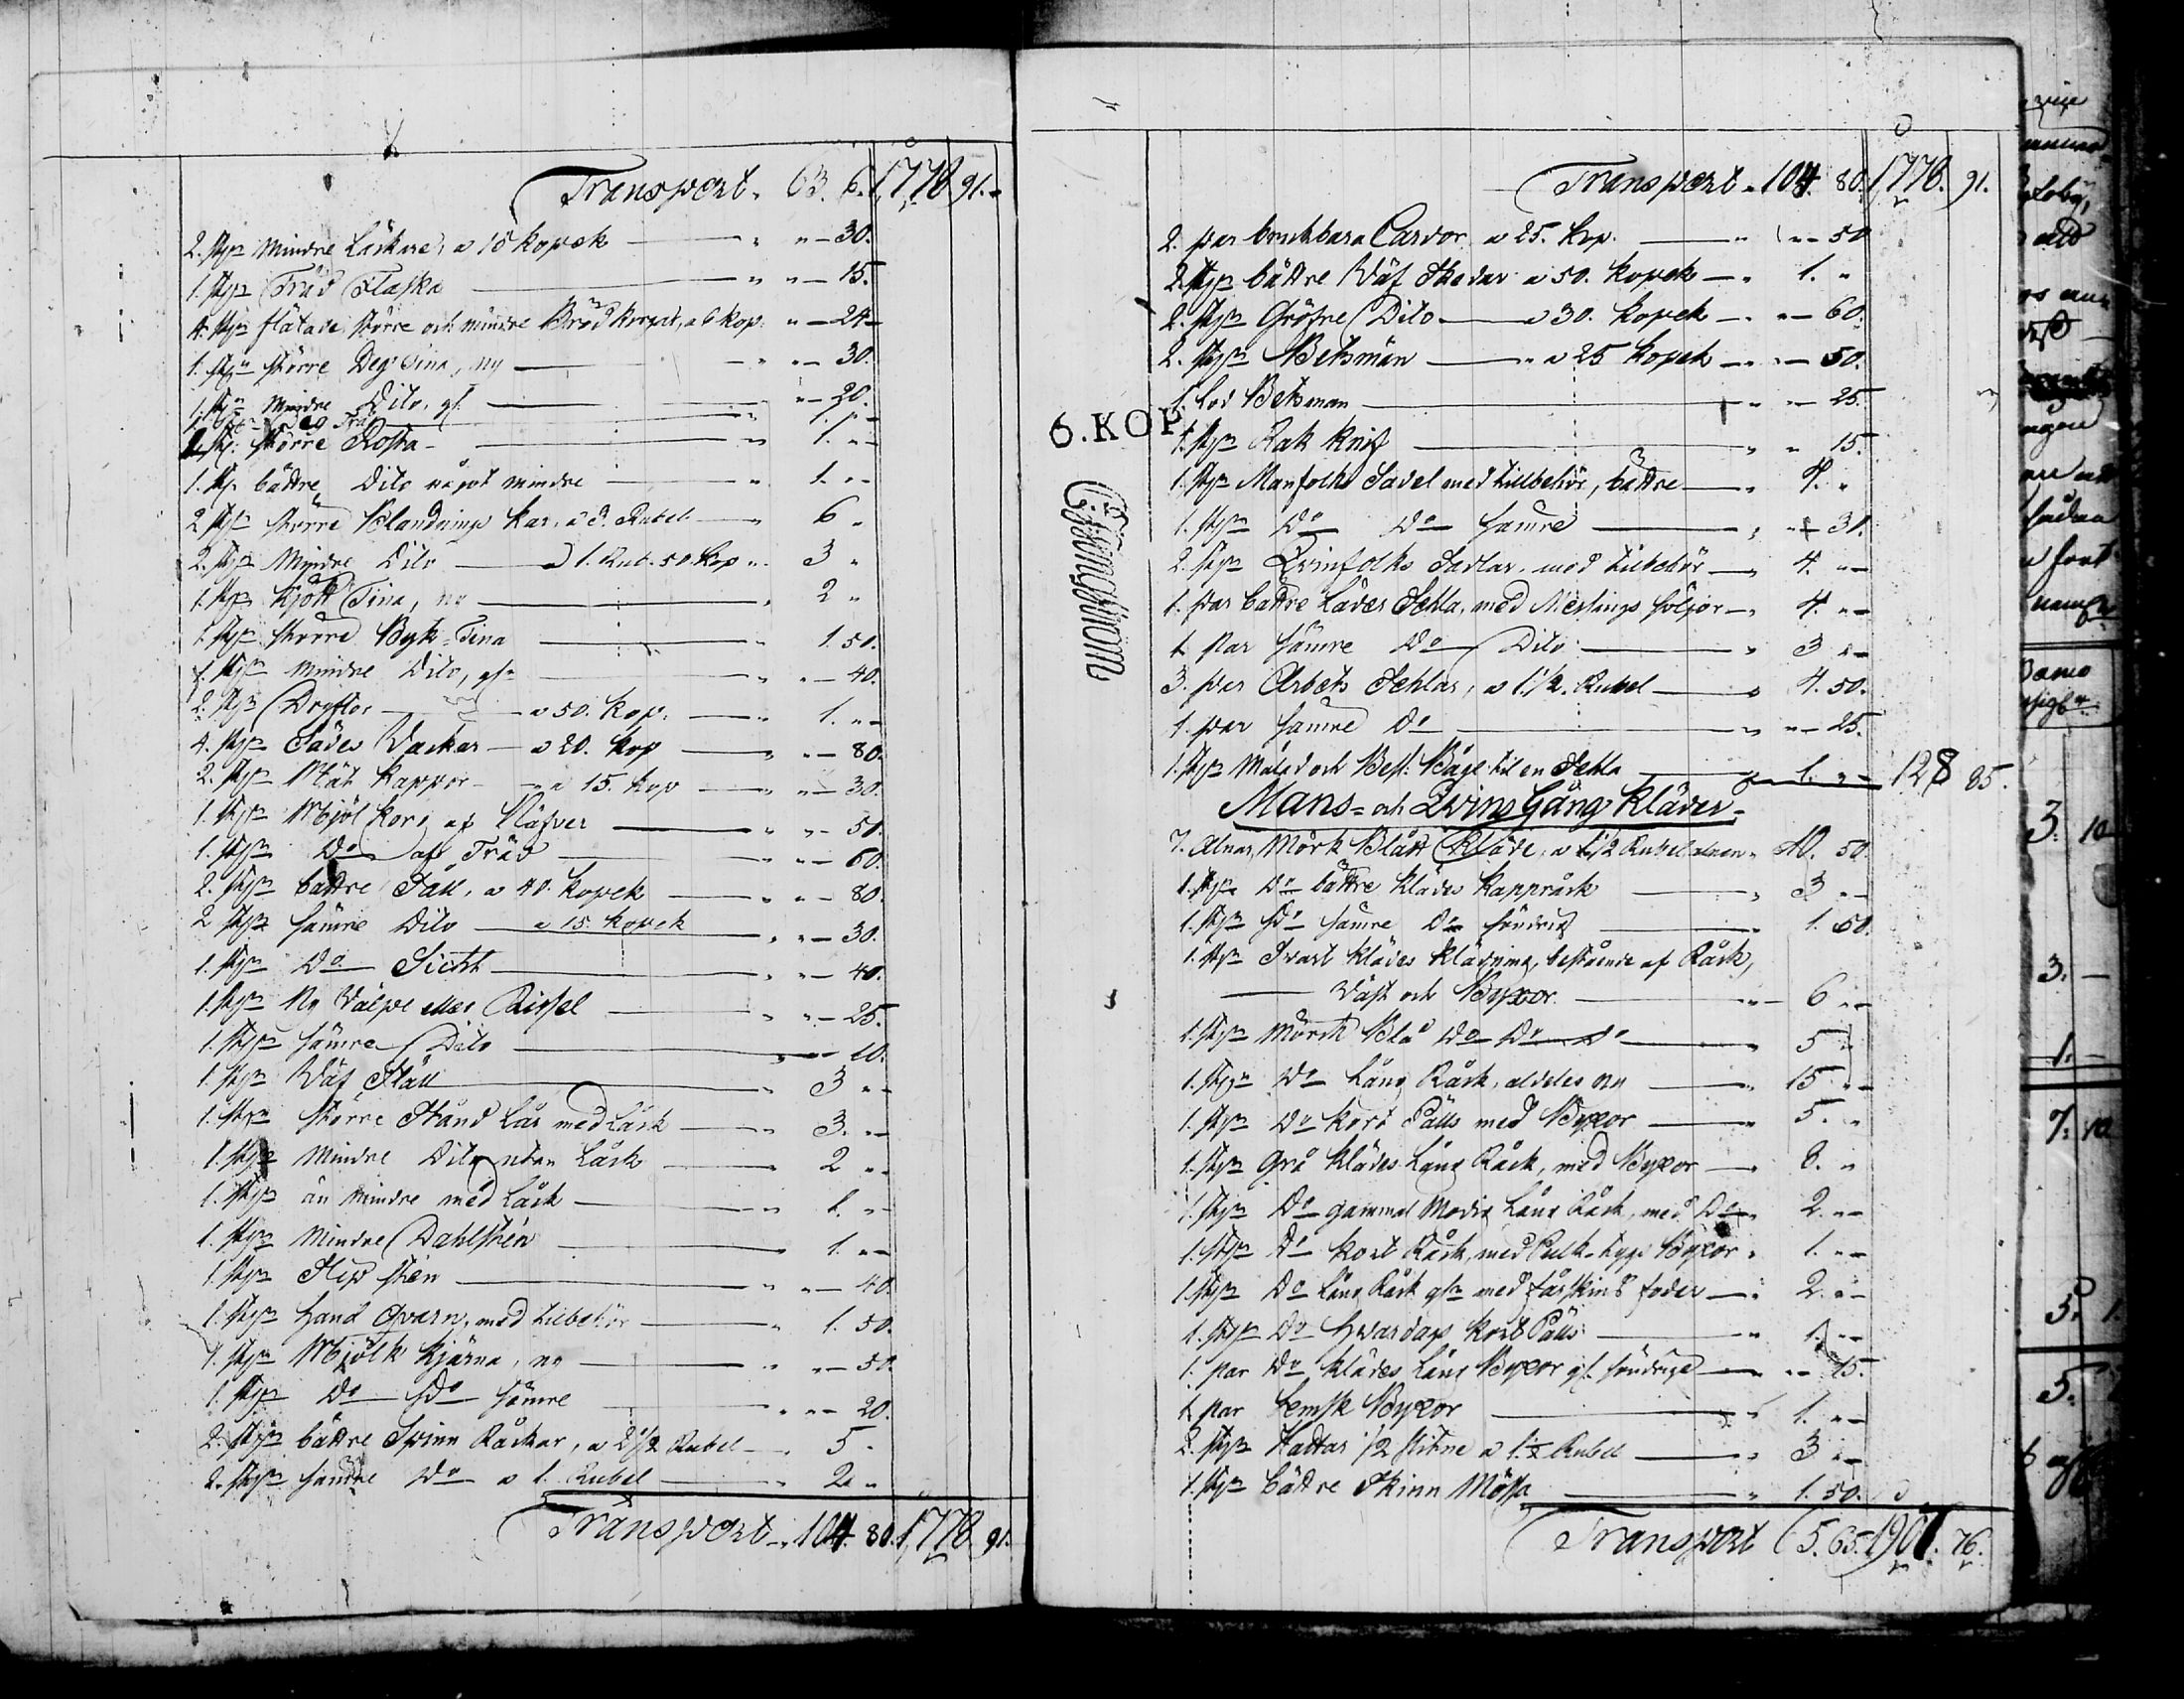 Transport 63. 6. 1,778 91.
2. st:n mindre Låckare, a 15 Kopek " — 30.
1. st:n Träd Flaska " — 15.
4. st:n flätade större och mindre Bröd korgar, a 6 kop. " — 24
1. st:n större Deg Tina, ny " — 30.
1. st:n Mindre Dito, gl. " — 20.
större 1. "
1. st. bättre Dito något mindre 1. "
2 st:n större Blandnings kar, a 3. Rubel 6 "
2. st:n Mindre Dito a 1. Rub. 50. Kop 3 "
1. st:n Kjött Tina, ny 2 "
1. st:n större Byk-Tina 1. 50.
1. st:n mindre Dito, gl:n " — 40.
2. st:n Dryftor a 50. Kop. 1. "
4. st:n Sädes Vackar a 20. Kop " — 80.
2. st:n Mät Kappor a 15. Kop " — 30.
1. st:n Mjöl Korg af Näfver " — 50.
1. st:n D:o af Träd " — 60.
2. st:n bättre Såll, a 40. Kopek " — 80.
2 st:n sämre Dito a 15. Kopek " — 30.
1. st:n D:o Sicht " — 40.
1. st:n Ny eller Rissel " — 25.
1. st:n sämre Dito " — 10.
1. st:n Wäf Ståll 3 "
1. st:n större Stånd Lår med Låck 3. "
1. st:n Mindre Dito utan Låck 2 "
1. st:n än mindre med Låck 1. "
1. st:n Mindre Dahlstén 1. "
1. st:n Slip stén " — 40.
1. st:n Hand Qvarn, med tilbehör 1. 50.
1. st:n Mjölk Kjärna, ny " — 50.
1. st:n D:o D:o sämre " — 20.
2. st:n bättre Spinn Råckar, a 2 1/2 Rubel 5 "
2. st:n sämre D:o a 1. Rubel 2. "
Transport 104. 80. 1,778. 91.
6. KOP.
Transport 104. 80. 1,778. 91.
2. par brukbara Cardor a 25. Kop. " — 50
2. st:n bättre Wäf Skedar a 50. Kopek 1. "
2. st:n Gröfre Dito a 30. Kopek " — 60.
2. st:n Betsmän a 25 Kopek " — 50.
1. Lod Betsman " — 25.
1. st:n Rak Knif " 15.
1. st:n Manfolks Sadel med tillbehör, bättre 4. "
1. st:n D:o D:o sämre " 30.
2. st:n Qvinfolks Sadlar, med tilbehör 4. "
1. par bättre Läder Sehla, med Messings söljor 4. "
1. par sämre D:o Dito 3 "
3. par Arbets Sehlar, a 1 1/2. Rubel 4. 50.
1. par sämre D:o " — 25.
1. st:n Målad och Besl: Båge til en Sehla 1. " 128 85.
Mans- och Qvins Gång Kläder.
7. Alnar Mörk Blått Kläde, a 1 1/2 Rubel alnen 10. 50.
1. st:n D:o bättre Klädes Kappråck 3 "
1. st:n D:o sämre D:o söndrig 1. 50.
1. st:n Svart Klädes Klädning, bestående af Råck,
Väst och Byxor 6 "
1. st:n Mörck Blå D:o D:o D:o 5 "
1. st:n D:o Lång Råck, aldeles ny 15 "
1. st:n D:o kort Pälls med Byxor 5. "
1. st:n Grå Klädes Lång Råck, med Byxor 8. "
1. st:n D:o gammal Modig Lång Råck, med D:o 2. "
1. st:n D:o kort Råck, med Byxor 1. "
1. st:n D:o Lång Råck gl:n med fårskins foder 2. "
1. st:n D:o Hvardags kort Pälls 1. "
1. par D:o Klädes Lång Byxor gl. söndrige " 15.
1. par Semsk Byxor 1. "
2. st:n Hattar 1/2 slitne a 1 1/2 Rubel 3 "
1. st:n bättre Skinn Mössa 1. 50.
Transport 65. 65. 1907. 76.